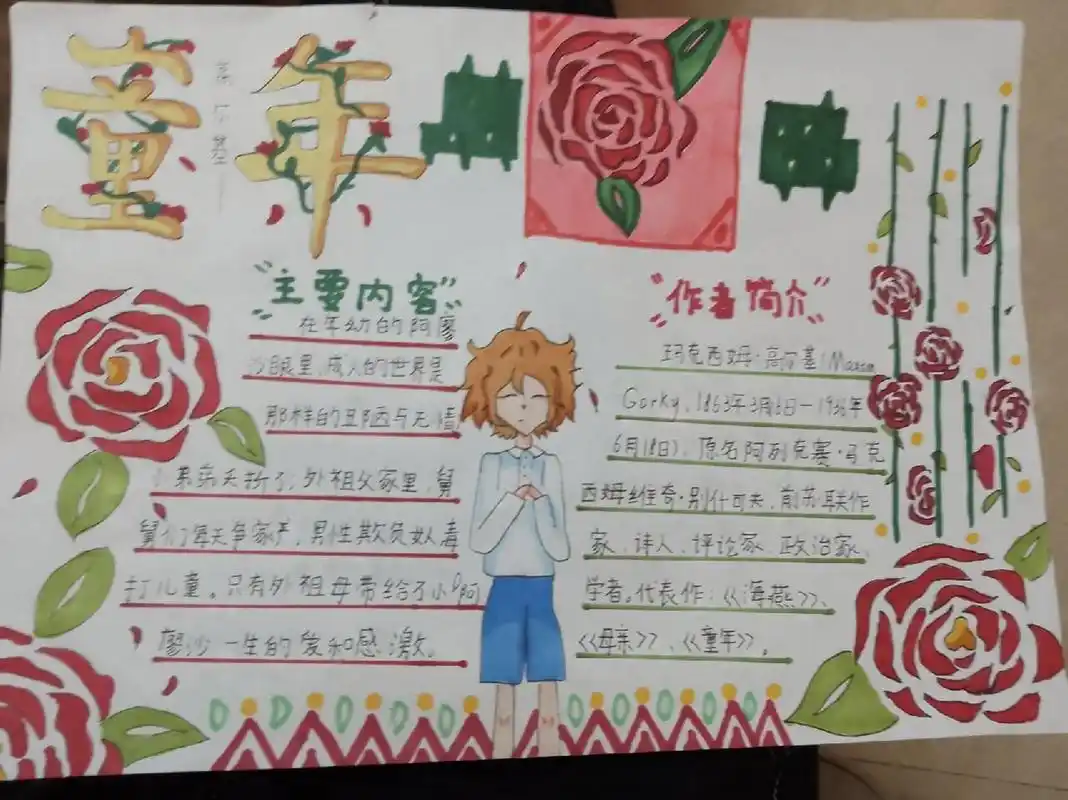 童年
高尔基
"主要内容"
在年幼的阿廖
沙眼里,成人的世界是
那样的丑陋与无情
弟病夭折了,外祖父家里,舅
舅们每天争家产,男性欺负女人毒
打儿童。只有外祖母带给了小阿
廖沙一生的爱和感激。
"作者简介"
玛克西姆·高尔基(Maxim
Gorky,1868年3月16日—1936年
6月18日),原名阿列克赛·马克
西姆维奇·别什可夫,前苏联作
家、诗人、评论家、政治家、
学者。代表作:《海燕》、
《母亲》、《童年》。